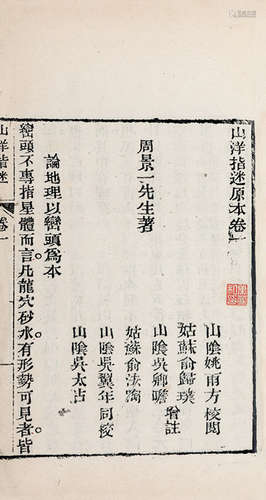 山洋指迷原本卷一
山陰姚雨方校閱
姑蘇俞歸璞
增註
山陰吳卿瞻
周景一先生著
姑蘇俞法陶
山陰吳翼年同校
山陰吳太占
論地理以巒頭爲本
巒頭不專指星體而言凡龍穴砂水有形勢可見者皆
山洋指迷
卷一